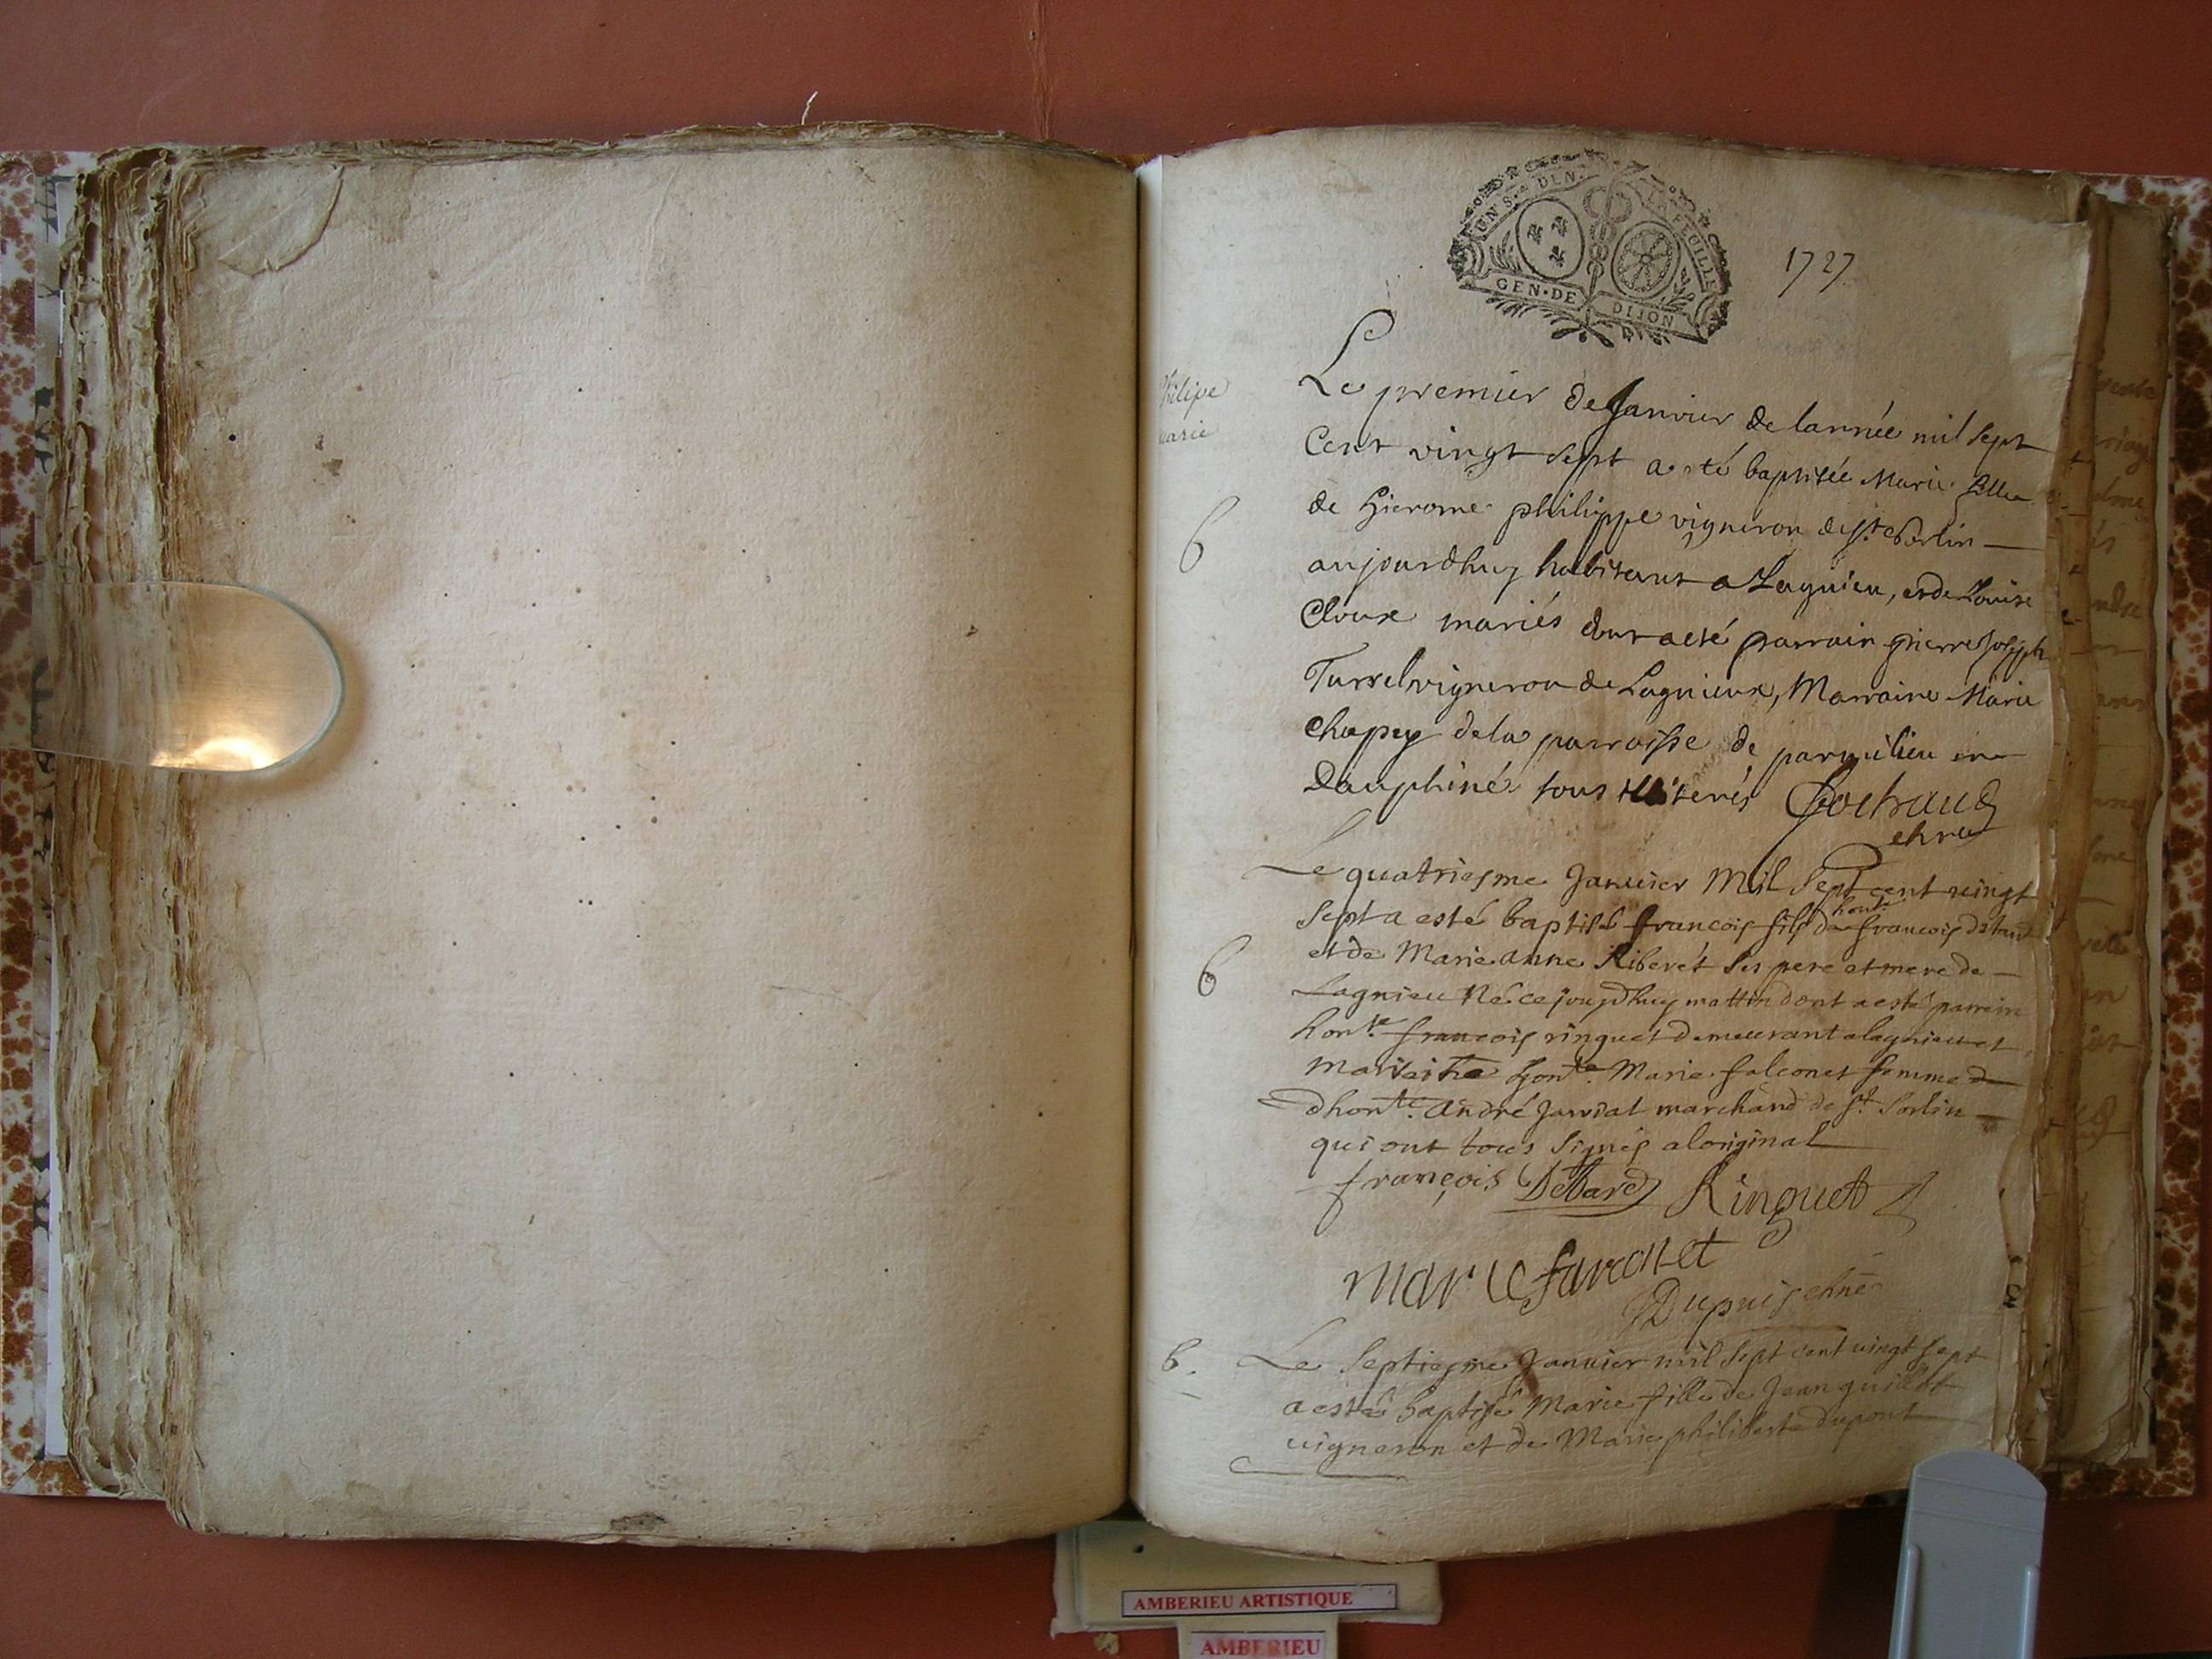 UN S. DEN. LA FEUILLE
GEN·DE DIJON
1727
philipe
marie
Le premier de Janvier de lannée mil sept
Cent vingt sept a esté baptisée Marie fille
B
de hierome philippe vigneron de st Sorlin
aujourdhuy habitant a Lagnieu, et de Louise
Cloux mariés dont a esté parrain pierre joseph
Turrel vigneron de Lagnieux, Marraine Marie
Chapey de la parroisse de parmilieu en
Dauphiné tous illiterés
Le quatriesme Januier Mil Sept cent vingt
Sept a esté baptisé francois fils de honte francois
B
et de Marie anne Riberet ses pere et mere de
Lagnieu Né ce jourdhuy mattin dont a esté parrein
honte francois ringuet demeurant a lagnieu et
marreine honte Marie falconet femme de
dhonte André Jandat marchand de st Sorlin
qui ont tous signés a loriginal
françois Debard Ringuet
marie farconet
Dupuis
B.
Le Septiesme Januier mil Sept cent vingt sept
a esté baptisé Marie fille de Jean guillot
uigneron et de Marie philiberte dupont
AMBERIEU ARTISTIQUE
AMBERIEU